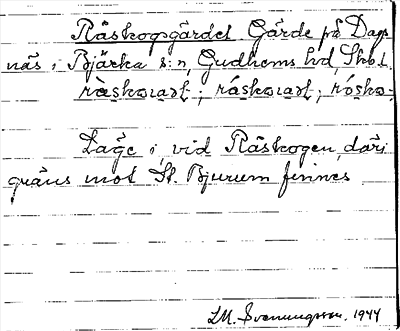 Råskogsgärdet Gärde på Dags
näs i Bjärka s:n, Gudhems hd, Skbl.
råskωιaʀt; råskoιaʀt; rósko-
Läge i, vid Råskogen, där i
gräns mot St. Bjurum finnes
LM. Svenungsson, 1944